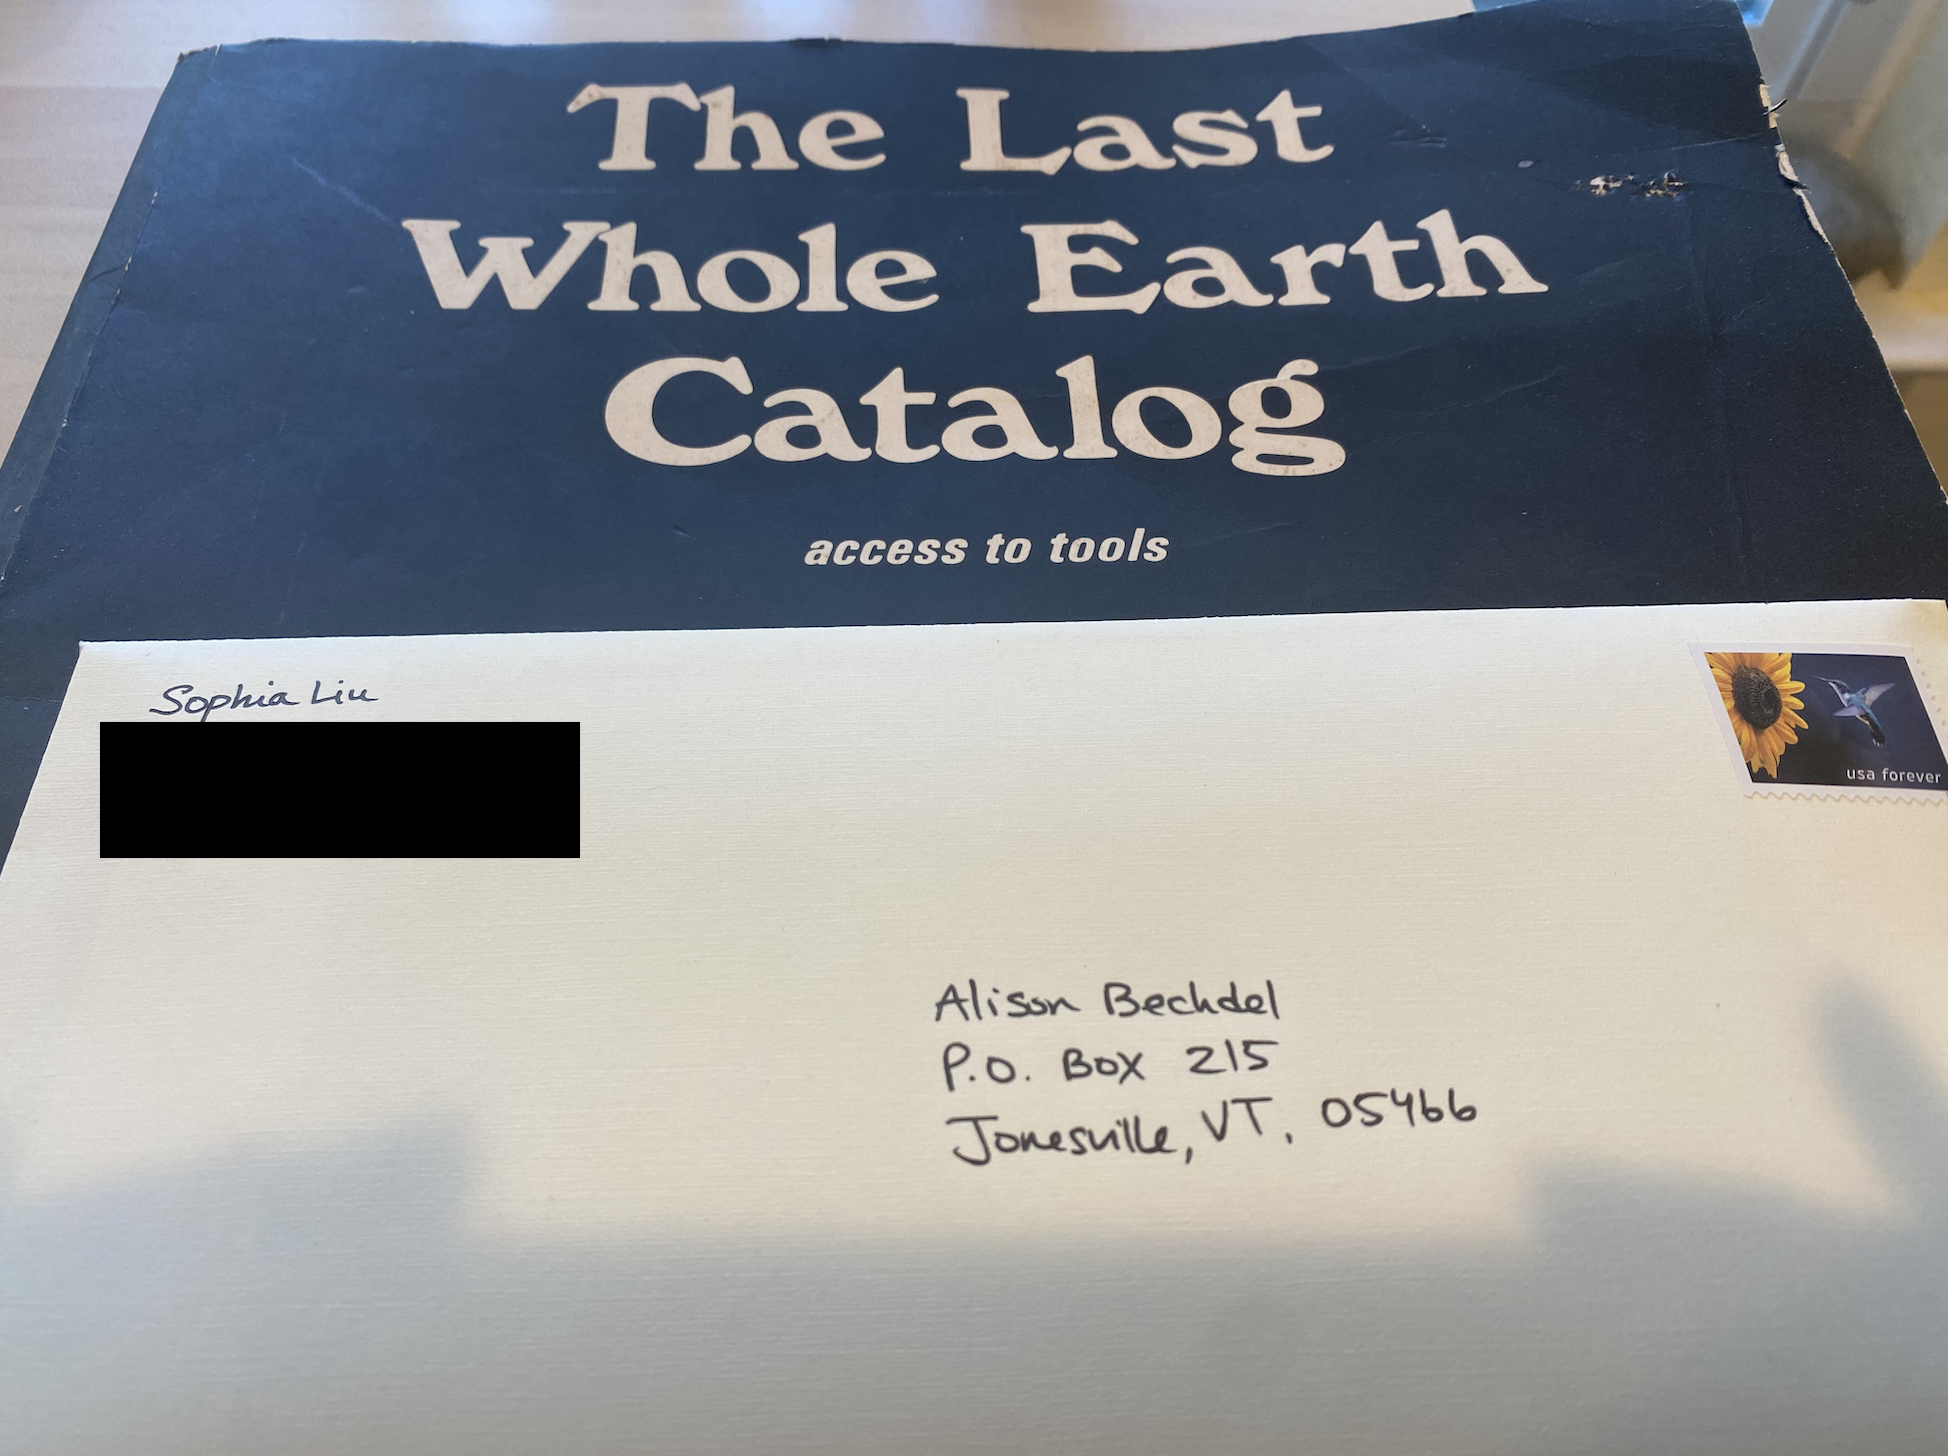 The Last
Whole Earth
Catalog
access to tools
Sophia Liu
usa forever
Alison Bechdel
P.O. Box 215
Jonesville, VT, 05466